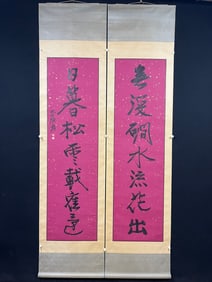 春深硐水流花出
日暮松雲載鶴還